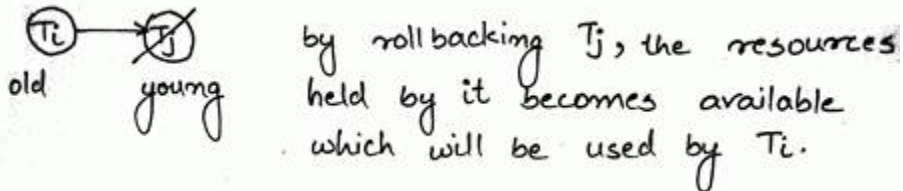 Ti Tj
old young
by rollbacking Tj, the resources
held by it becomes available
which will be used by Ti.